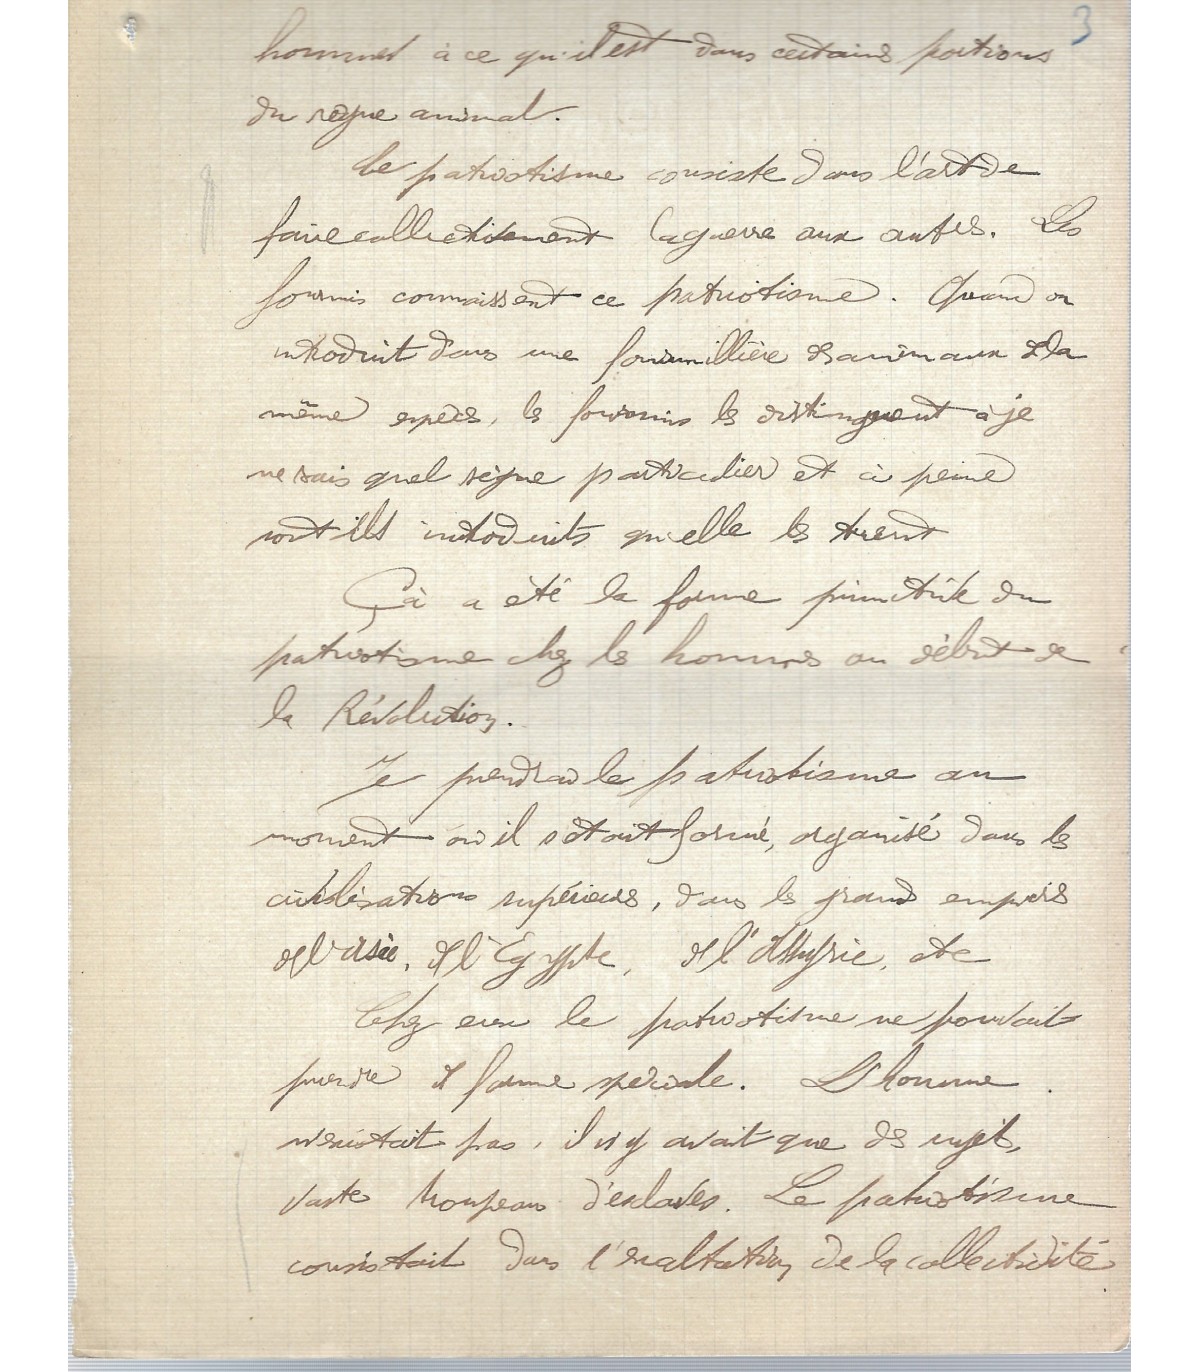 3
hommes à ce qu'il est dans certains portions
du règne animal.
Le patriotisme consiste dans l'art de
faire collectivement la guerre aux autres. Les
fourmis connaissent ce patriotisme. Quand on
introduit dans une fourmillière des animaux de la
même espèce, les fourmis les distinguent à je
ne sais quel signe particulier et à peine
sont ils introduits qu'elle les tuent
Çà a été la forme primitive du
patriotisme chez les hommes au début de
la Révolution.
Je prendrai le patriotisme au
moment où il s'était formé, organisé dans les
civilisations supérieures, dans les grands empires
de l'Asie, de l'Egypte, de l'Assyrie, etc
Chez eux le patriotisme ne pouvait
prendre de forme spéciale. L'homme
n'existait pas, il n'y avait que des sujets,
vaste troupeau d'esclaves. Le patriotisme
consistait dans l'exaltation de la collectivité